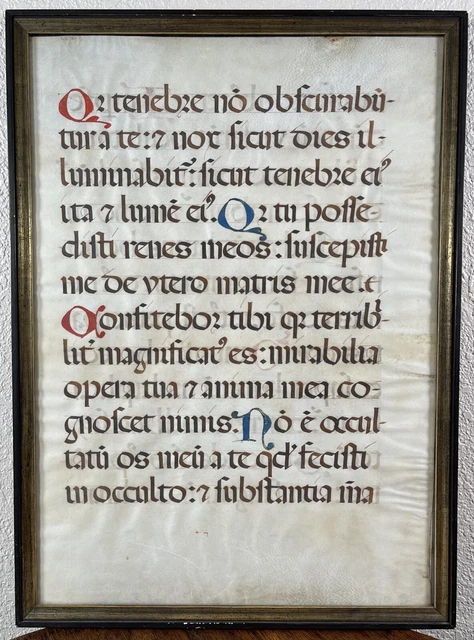 Qꝛ tenebre nō obscurabū-
tur a te: ⁊ nox sicut dies il-
luminabit᷑: sicut tenebre eiꝰ
ita ⁊ lumē eiꝰ. Qꝛ tu posse-
disti renes meos: suscepisti
me de vtero matris mee.
Confitebor tibi qꝛ terribi-
lit᷑ magnificatꝰ es: mirabilia
opera tua ⁊ anima mea co-
gnoscet nimis. Nō ē occul-
tatū os meū a te qd̓ fecisti
in occulto: ⁊ substantia m̄a